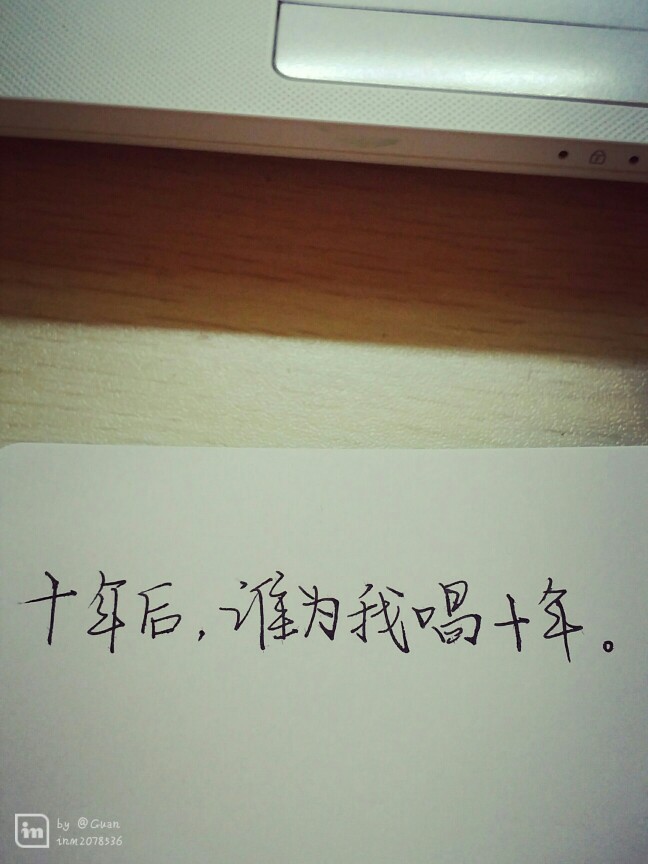 十年后，谁为我唱十年。
in by @Guan
inm2078536